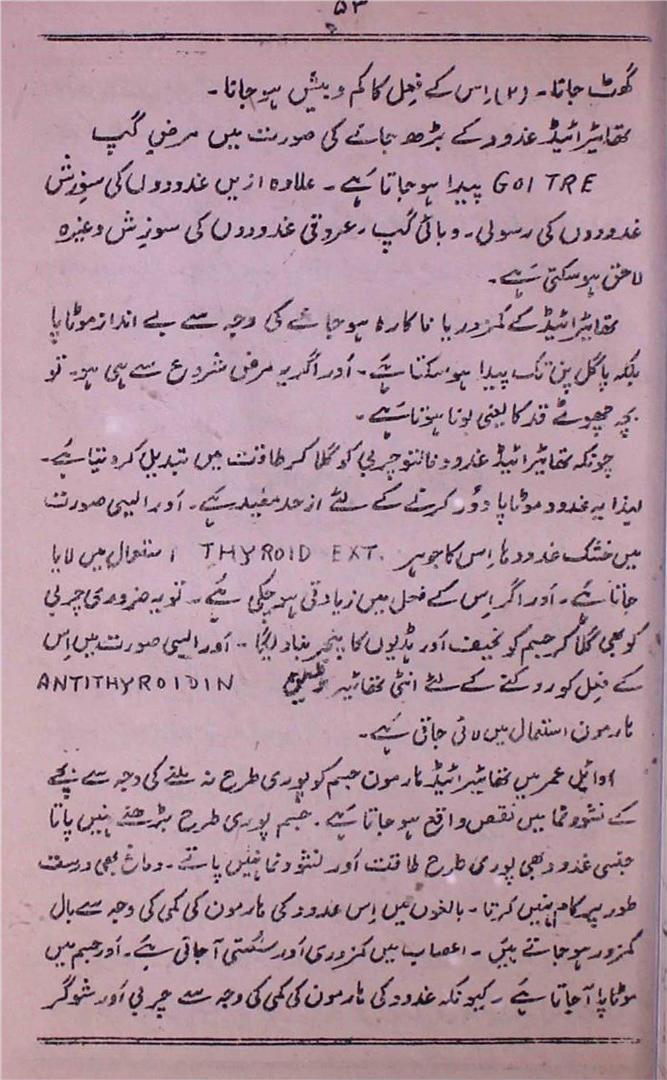 ۵۳
گھٹ جاتا۔ (۲) اِس کے فعل کا کم و بیش ہو جانا۔
تھائیرائیڈ غدود کے بڑھ جانے کی صورت میں مرض گپ
GOITRE پیدا ہو جاتا ہے۔ علاوہ ازیں غدودوں کی سوزش
غدودوں کی رسولی۔ وبائی گپ، عروقی غدودوں کی سوزش وغیرہ
لاحق ہو سکتی ہے۔
تھائیرائیڈ کے کمزور یا ناکارہ ہو جانے کی وجہ سے بے انداز موٹاپا
بلکہ پاگل پن تک پیدا ہو سکتا ہے۔ اور اگر یہ مرض شروع سے ہی ہو۔ تو
بچہ چھوٹے قد کا یعنی بونا ہوتا ہے۔
چونکہ تھائیرائیڈ غدود فانتو چربی کو گلا کر طاقت میں تبدیل کر دیتا ہے۔
لہذا یہ غدود موٹاپا دُور کرنے کے لئے از حد مفید ہے۔ اور ایسی صورت
میں خشک غدود یا اِس کا جوہر THYROID EXT. استعمال میں لایا
جاتا ہے۔ اور اگر اِس کے فعل میں زیادتی ہو چکی ہے۔ تو یہ ضروری چربی
کو بھی گلا کر جسم کو نحیف اور ہڈیوں کا پنجر بنا دیگا۔ اور ایسی صورت میں اِس
کے فعل کو روکنے کے لئے انٹی تھائیر ANTITHYROIDIN
ہارمون استعمال میں لائی جاتی ہے۔
اوائیل عمر میں تھائیرائیڈ ہارمون جسم کو پوری طرح نہ ملنے کی وجہ سے بچے
کے نشوونما میں نقص واقع ہو جاتا ہے۔ جسم پوری طرح بڑھنے نہیں پاتا
جنسی غدود بھی پوری طرح طاقت اور نشوونما نہیں پاتے۔ دماغ بھی درست
طور پر کام نہیں کرتا۔ بالغوں میں اِس غدود کی ہارمون کی کمی کی وجہ سے بال
کمزور ہو جاتے ہیں۔ اعصاب میں کمزوری اور سُستی آ جاتی ہے۔ اور جسم میں
موٹاپا آ جاتا ہے۔ کیونکہ غدود کی ہارمون کی کمی کی وجہ سے چربی اور شوگر